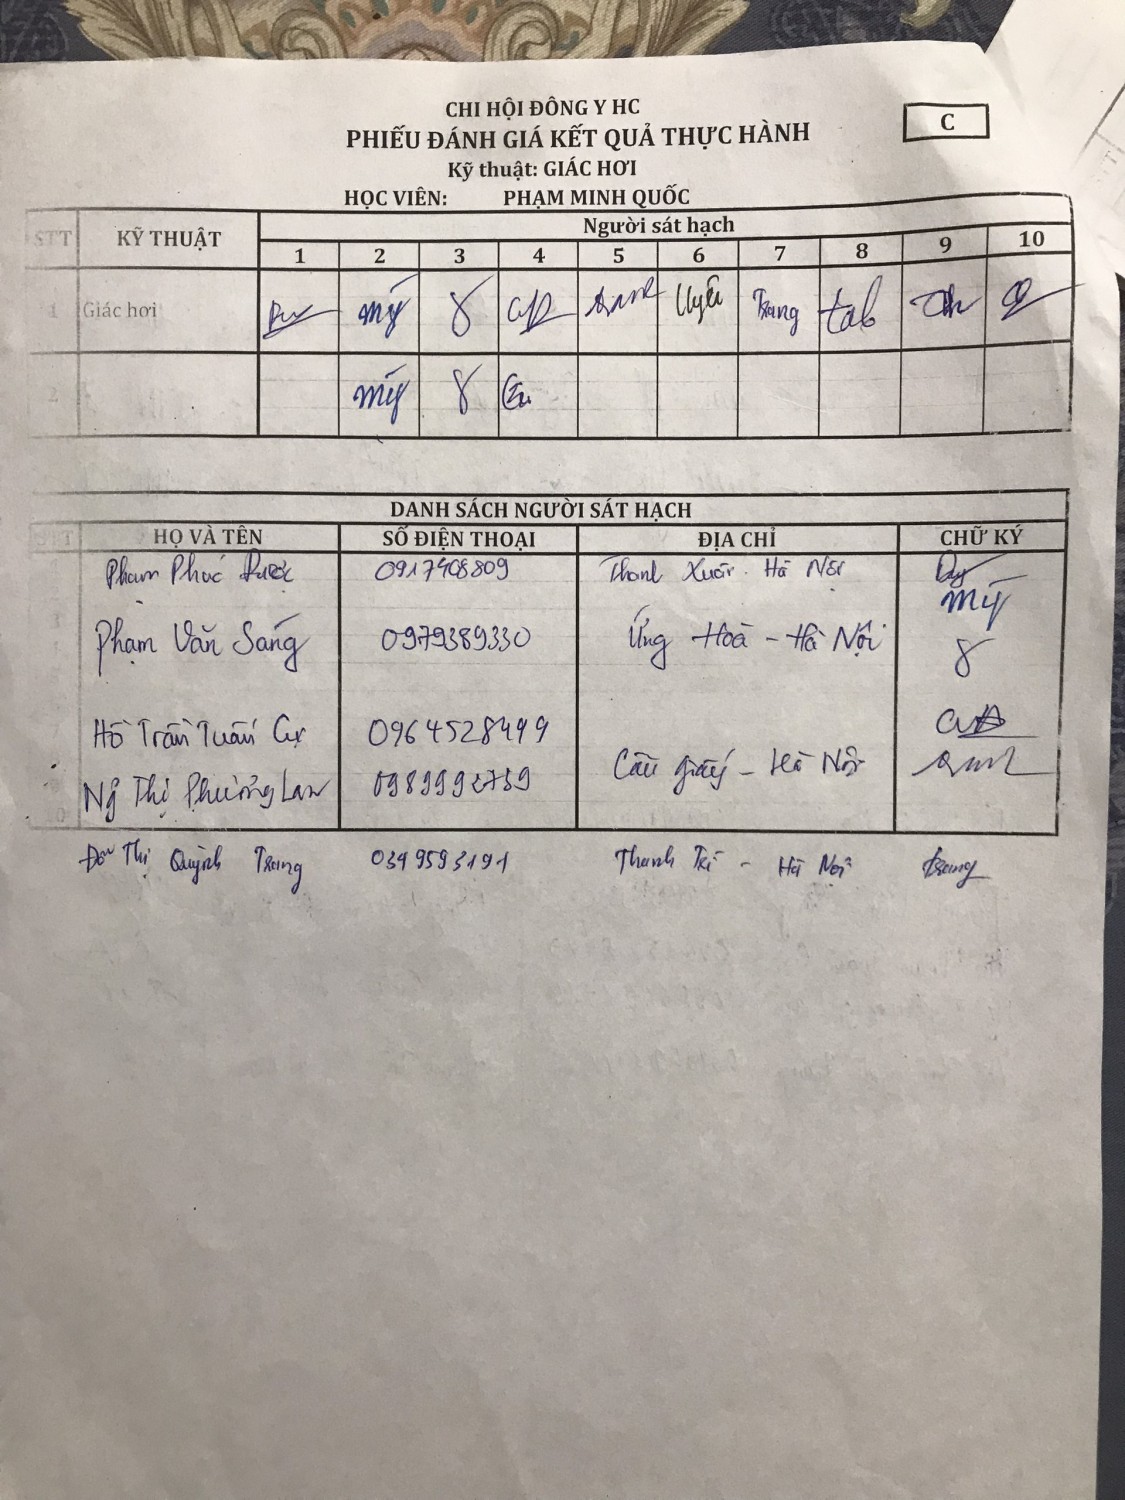 CHI HỘI ĐÔNG Y HC
C
PHIẾU ĐÁNH GIÁ KẾT QUẢ THỰC HÀNH
Kỹ thuật: GIÁC HƠI
HỌC VIÊN: PHẠM MINH QUỐC
STT KỸ THUẬT Người sát hạch
1 2 3 4 5 6 7 8 9 10
1 Giác hơi Mý 8 Uyên Trang
2 Mý 8
DANH SÁCH NGƯỜI SÁT HẠCH
STT HỌ VÀ TÊN SỐ ĐIỆN THOẠI ĐỊA CHỈ CHỮ KÝ
Phạm Phúc Dược 0917408809 Thanh Xuân - Hà Nội
Mý
Phạm Văn Sáng 0979389330 Ứng Hoà - Hà Nội 8
Hồ Trần Tuấn 0964528499
Ng Thị Phương Lan Cầu giấy - Hà Nội
10
Thị Quỳnh Trang 0349593191 Thanh Trì - Hà Nội Trang